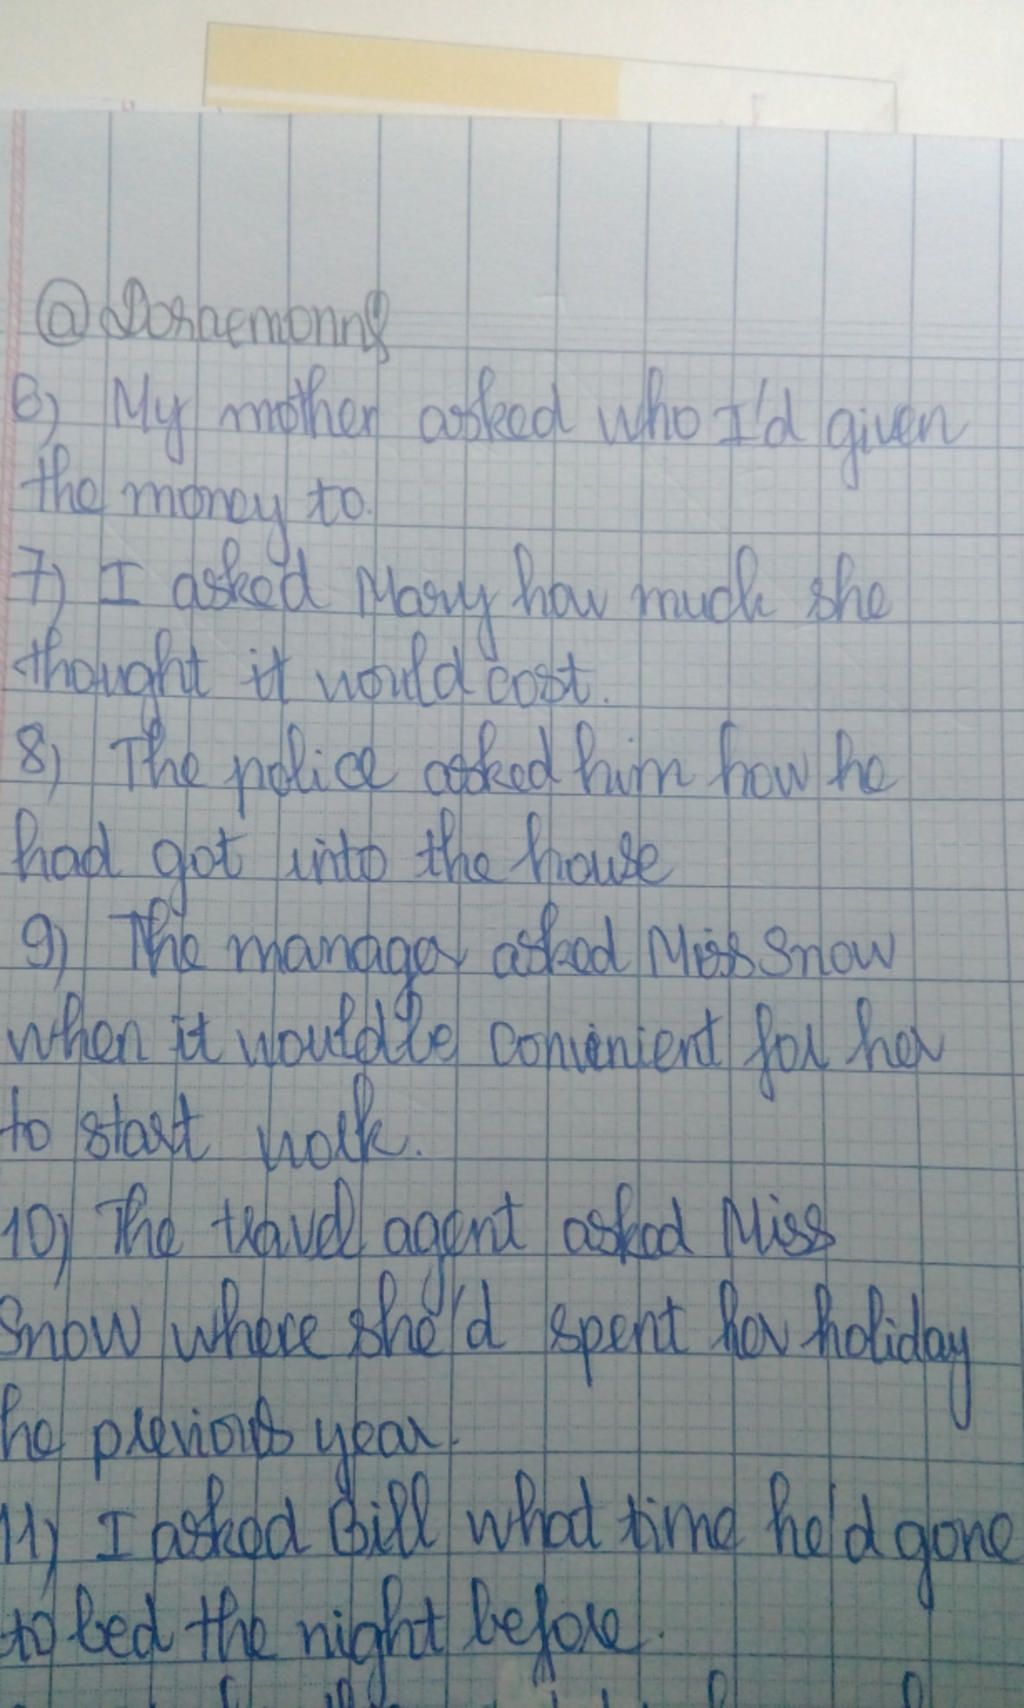 @Doraemonn8
6) My mother asked who I'd given
the money to.
7) I asked Mary how much she
thought it would cost.
8) The police asked him how he
had got into the house
9) The manager asked Miss Snow
when it would be convenient for her
to start work.
10) The travel agent asked Miss
Snow where she'd spent her holiday
he previous year.
11) I asked Bill what time he'd gone
to bed the night before.